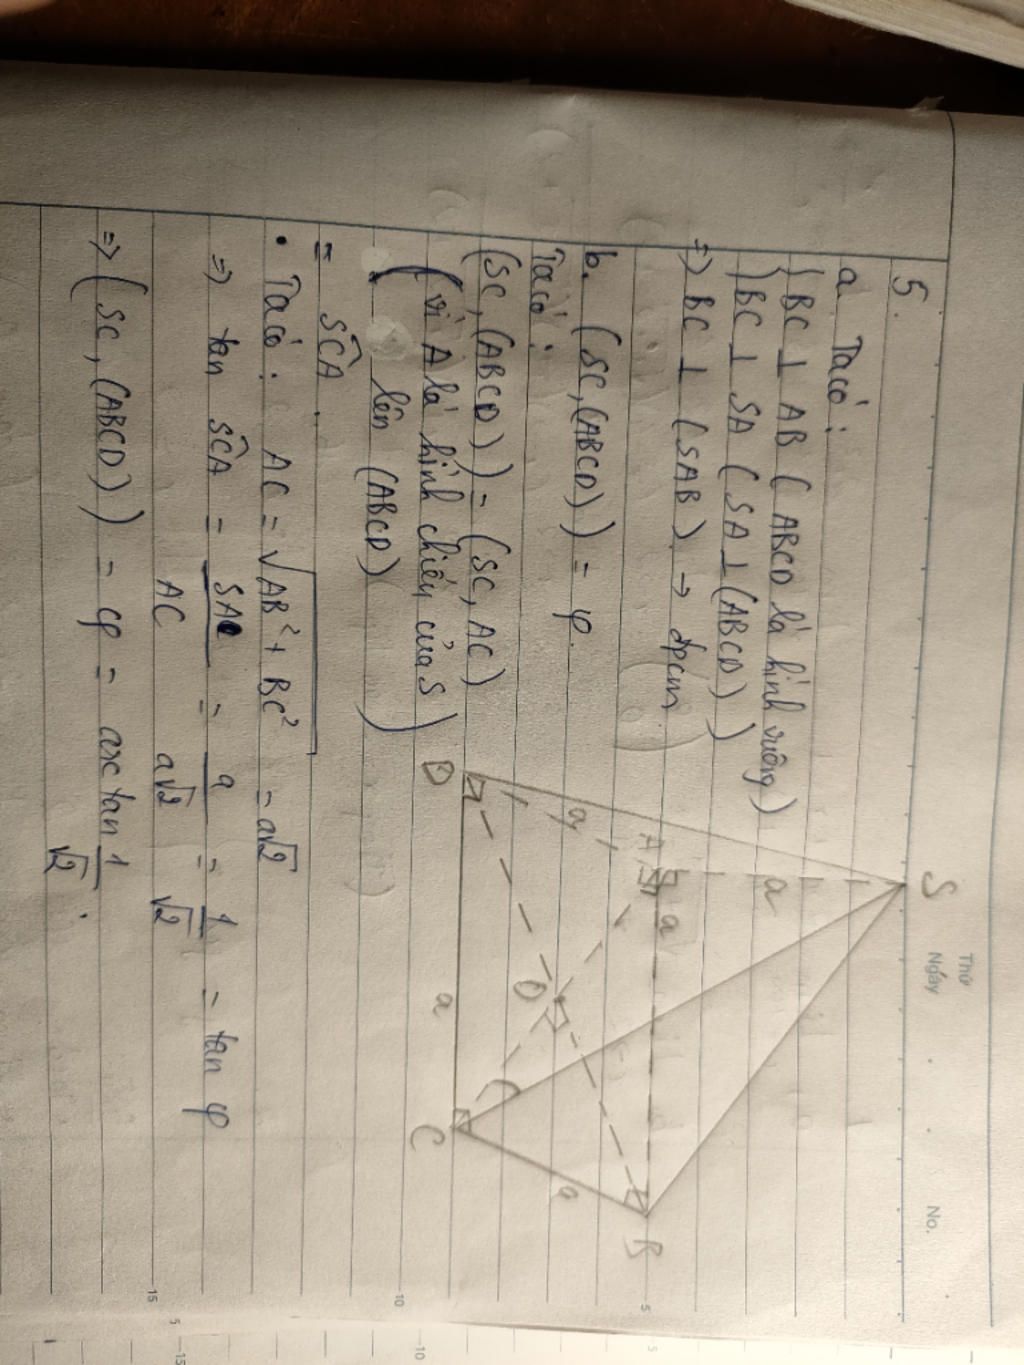 Thứ
Ngày
No.
5.
a. Ta có:
{ BC ⊥ AB ( ABCD là hình vuông)
{ BC ⊥ SA ( SA ⊥ (ABCD) )
=> BC ⊥ (SAB) → đpcm
b. (SC, (ABCD)) = φ.
Ta có:
(SC, (ABCD)) = (SC, AC)
( vì A là hình chiếu của S
lên (ABCD) )
= SĈA.
• Ta có: AC = √AB² + BC² = a√2
=> tan SĈA = SA/AC = a/a√2 = 1/√2 = tan φ
=> (SC, (ABCD)) = φ = arctan 1/√2.
S
a
A
a
a
B
D
O
a
a
C
5
10
15
5
10
15